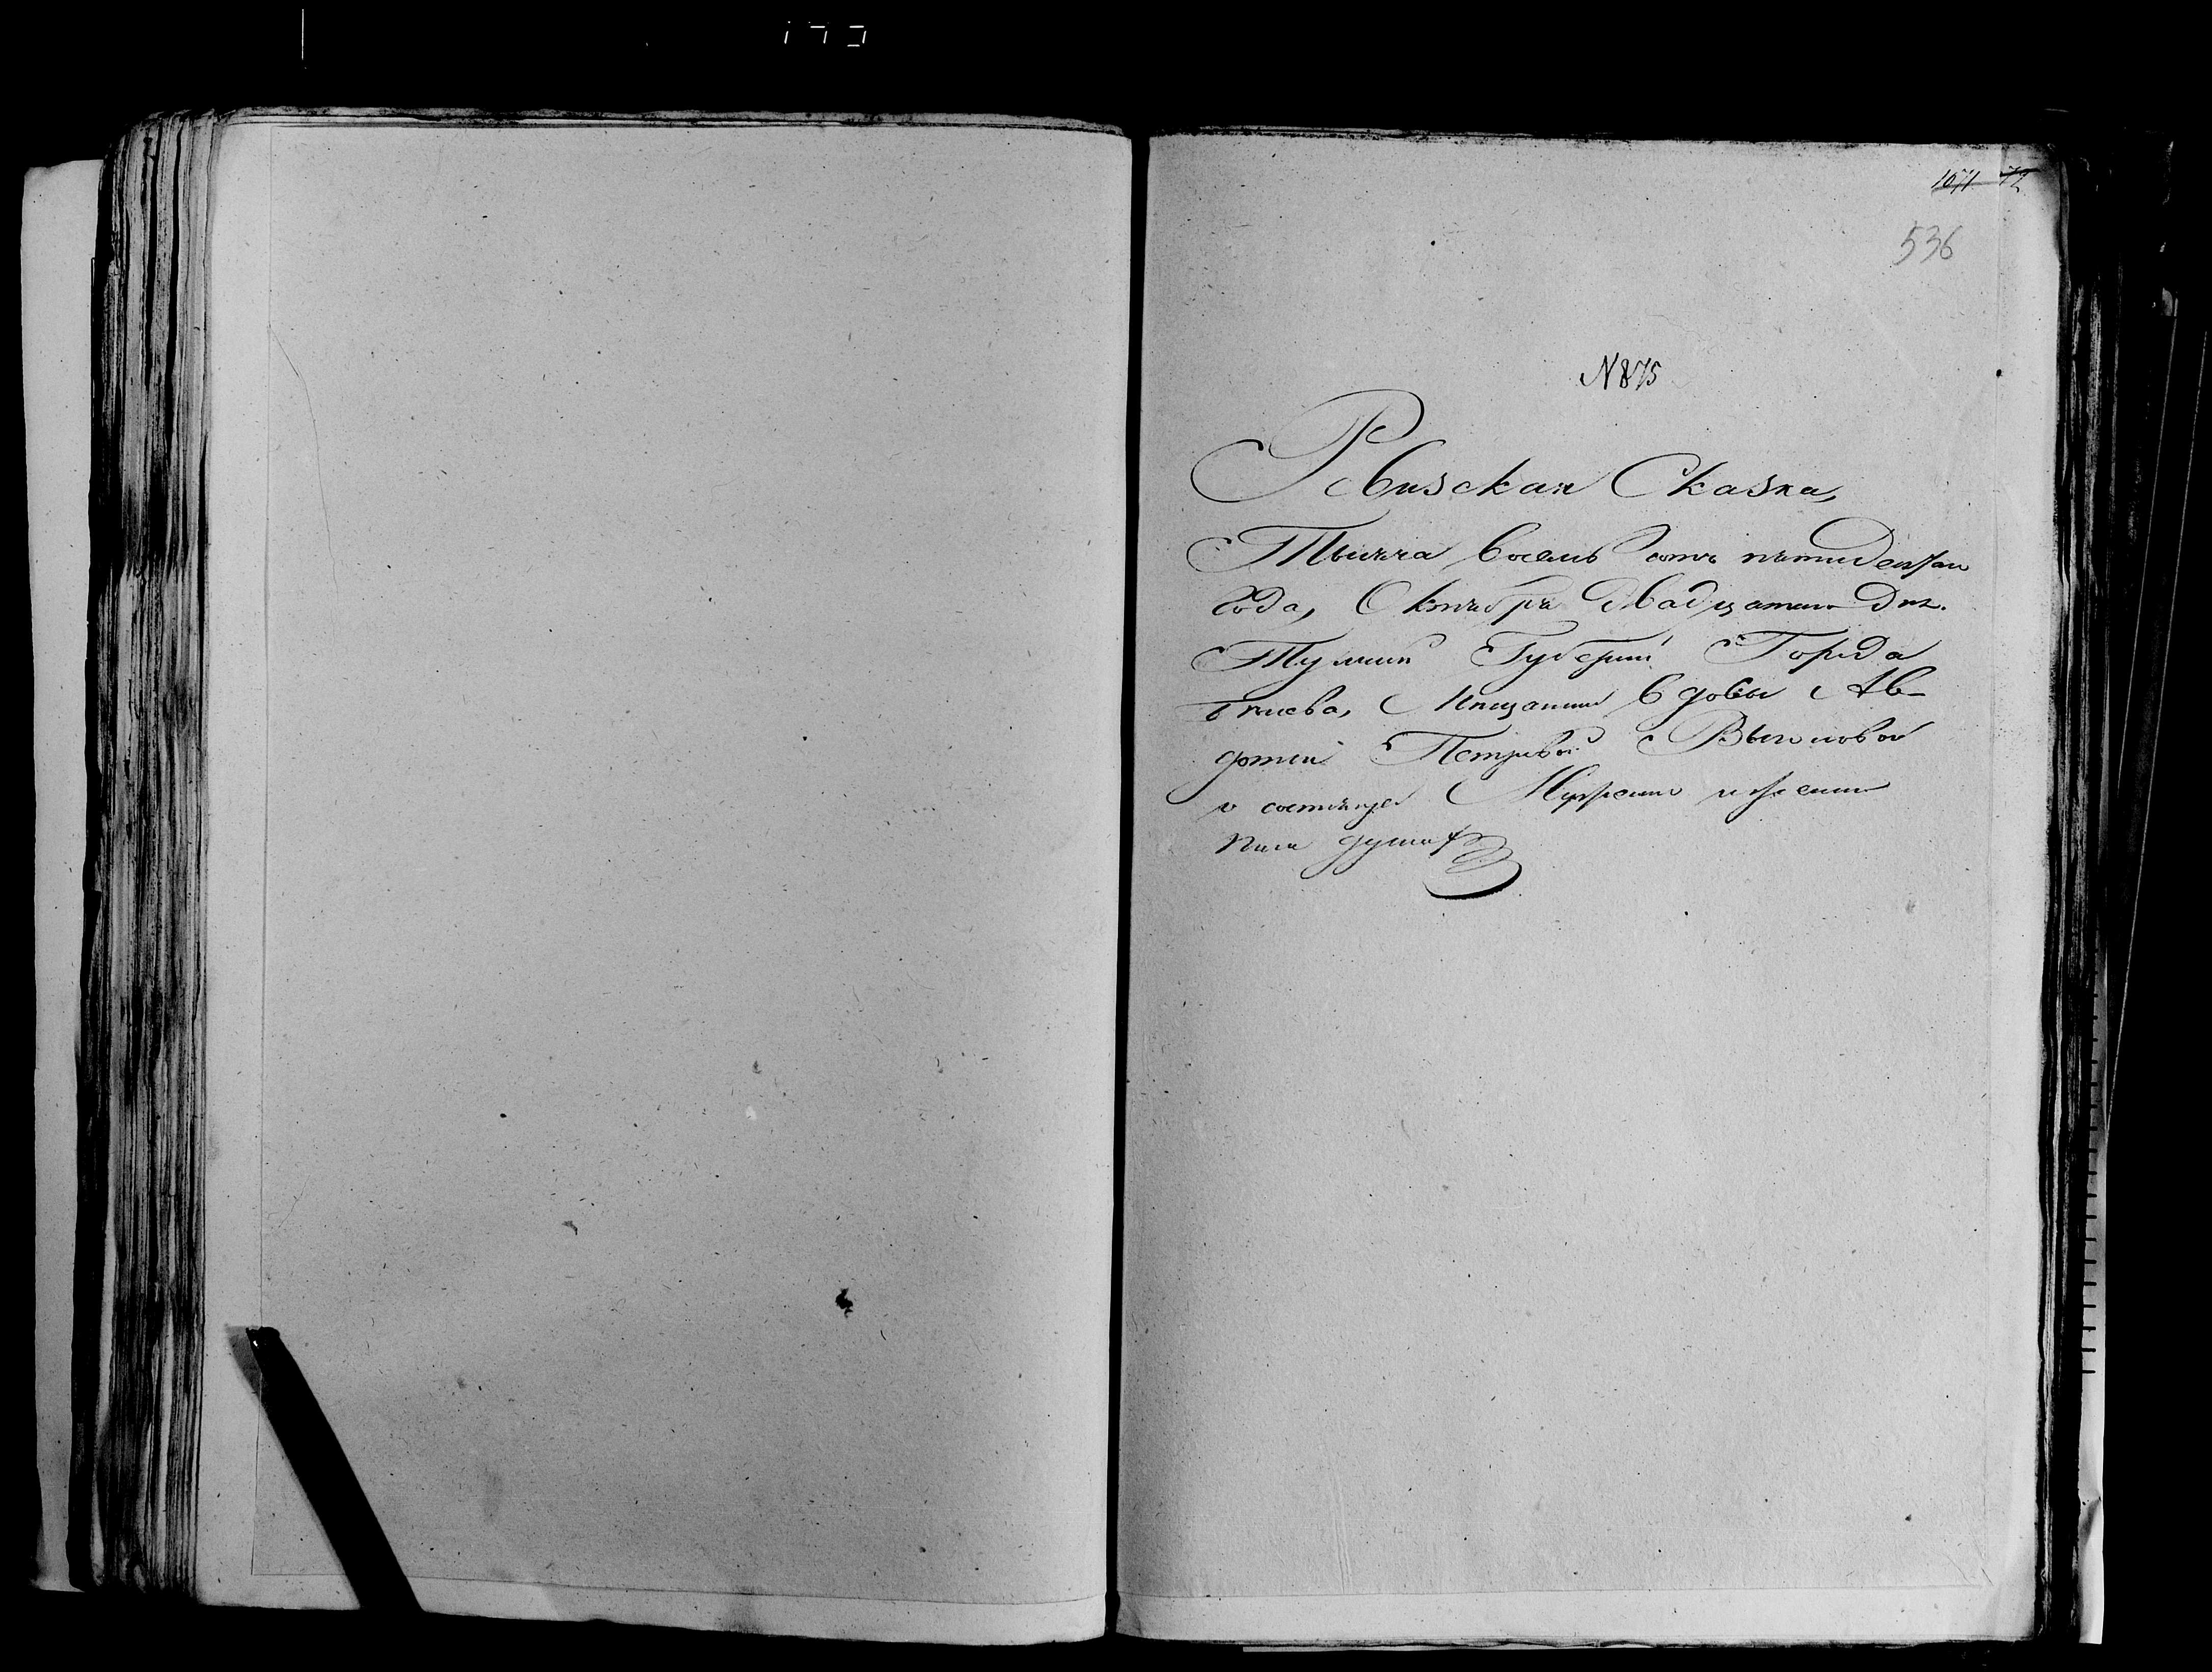 1071 72
536
N 875
Ревизская Сказка,
Тысяча восемь сотъ пятидесятаго
года, Октября двадцатаго дня.
Тульской Губерніи Города
Бѣлева, Мѣщанки вдовы Ав-
дотьи Петровой
о состоящих Мужеска и женска
пола душах